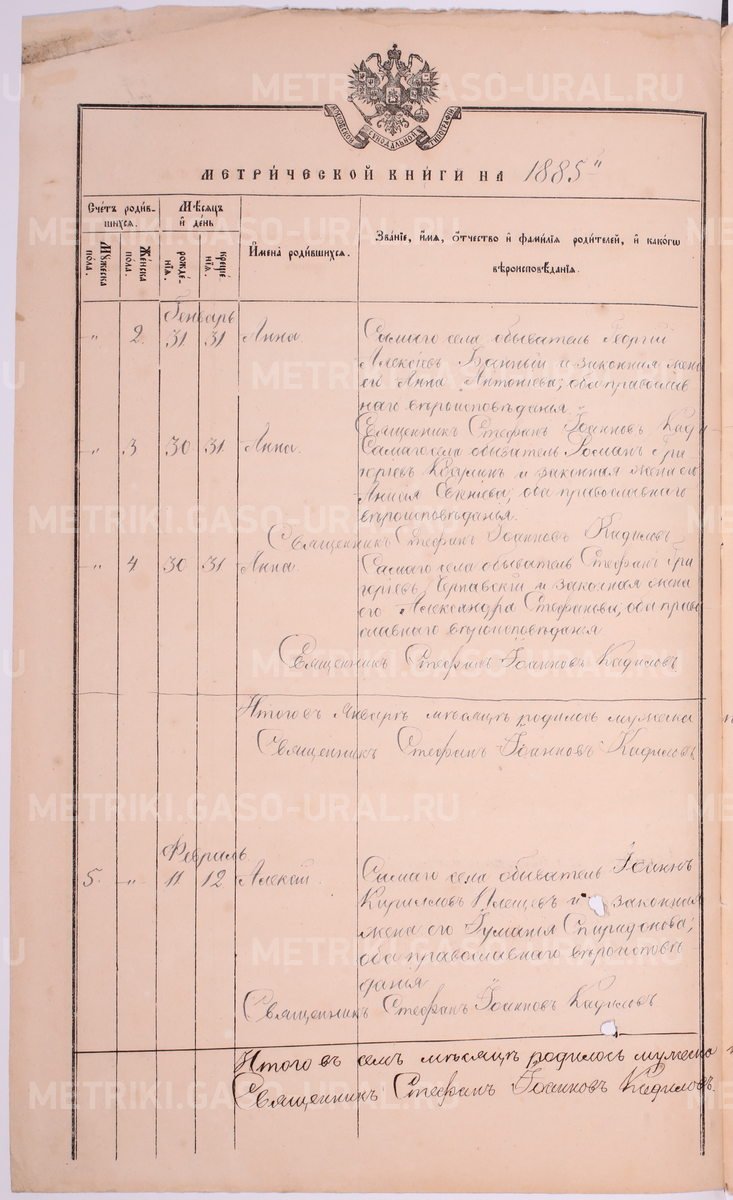 МОСКОВСКОЙ СѴНОДАЛЬНОЙ ТИПОГРАФІИ
МЕТРИ́ЧЕСКОЙ КНИ́ГИ НА 1885
Сче́тъ роди́в-
шихся.
Мѣ́сяцъ
и҆ де́нь
Му́жеска
по́ла.
Же́нска
по́ла.
рожде́-
нія.
креще́-
нія.
И҆мена̀ роди́вшихся.
Зва́ніе, и҆́мя, ѻ҆́тчество и҆ фами́лія роди́телей, и҆ како́гѡ
вѣроисповѣ́данія.
Генварь
" 2 31 31 Анна. Самаго села обыватель Георгій
Алексѣевъ и законная жена
его Анна Антоніева; оба православ
наго вѣроисповѣданія.
Священникъ Стефанъ Іоанновъ
" 3 30 31 Анна. Самаго села обыватель Романъ Гри-
горіевъ и законная жена его
оба православнаго
вѣроисповѣданья.
Священникъ Стефанъ Іоанновъ Кадиловъ
" 4 30 31 Анна. Самаго села обыватель Стефанъ Гри
горіевъ и законная жена
его Александра Стефанова, оба право
славнаго вѣроисповѣданья
Священникъ Стефанъ Іоанновъ Кадиловъ
Итого въ Январѣ мѣсяцѣ родилось мужеска
Священникъ Стефанъ Іоанновъ Кадиловъ
Февраль.
5. " 11 12 Алексѣй. Самаго села обыватель Іоаннъ
Кирилловъ Плещевъ и законная
жена его Спиридонова;
оба православнаго вѣроисповѣ-
данья
Священникъ Стефанъ Іоанновъ Кадиловъ
Итого въ семъ мѣсяцѣ родилось мужеска
Священникъ Стефанъ Іоанновъ Кадиловъ.
METRIKI.GASO-URAL.RU